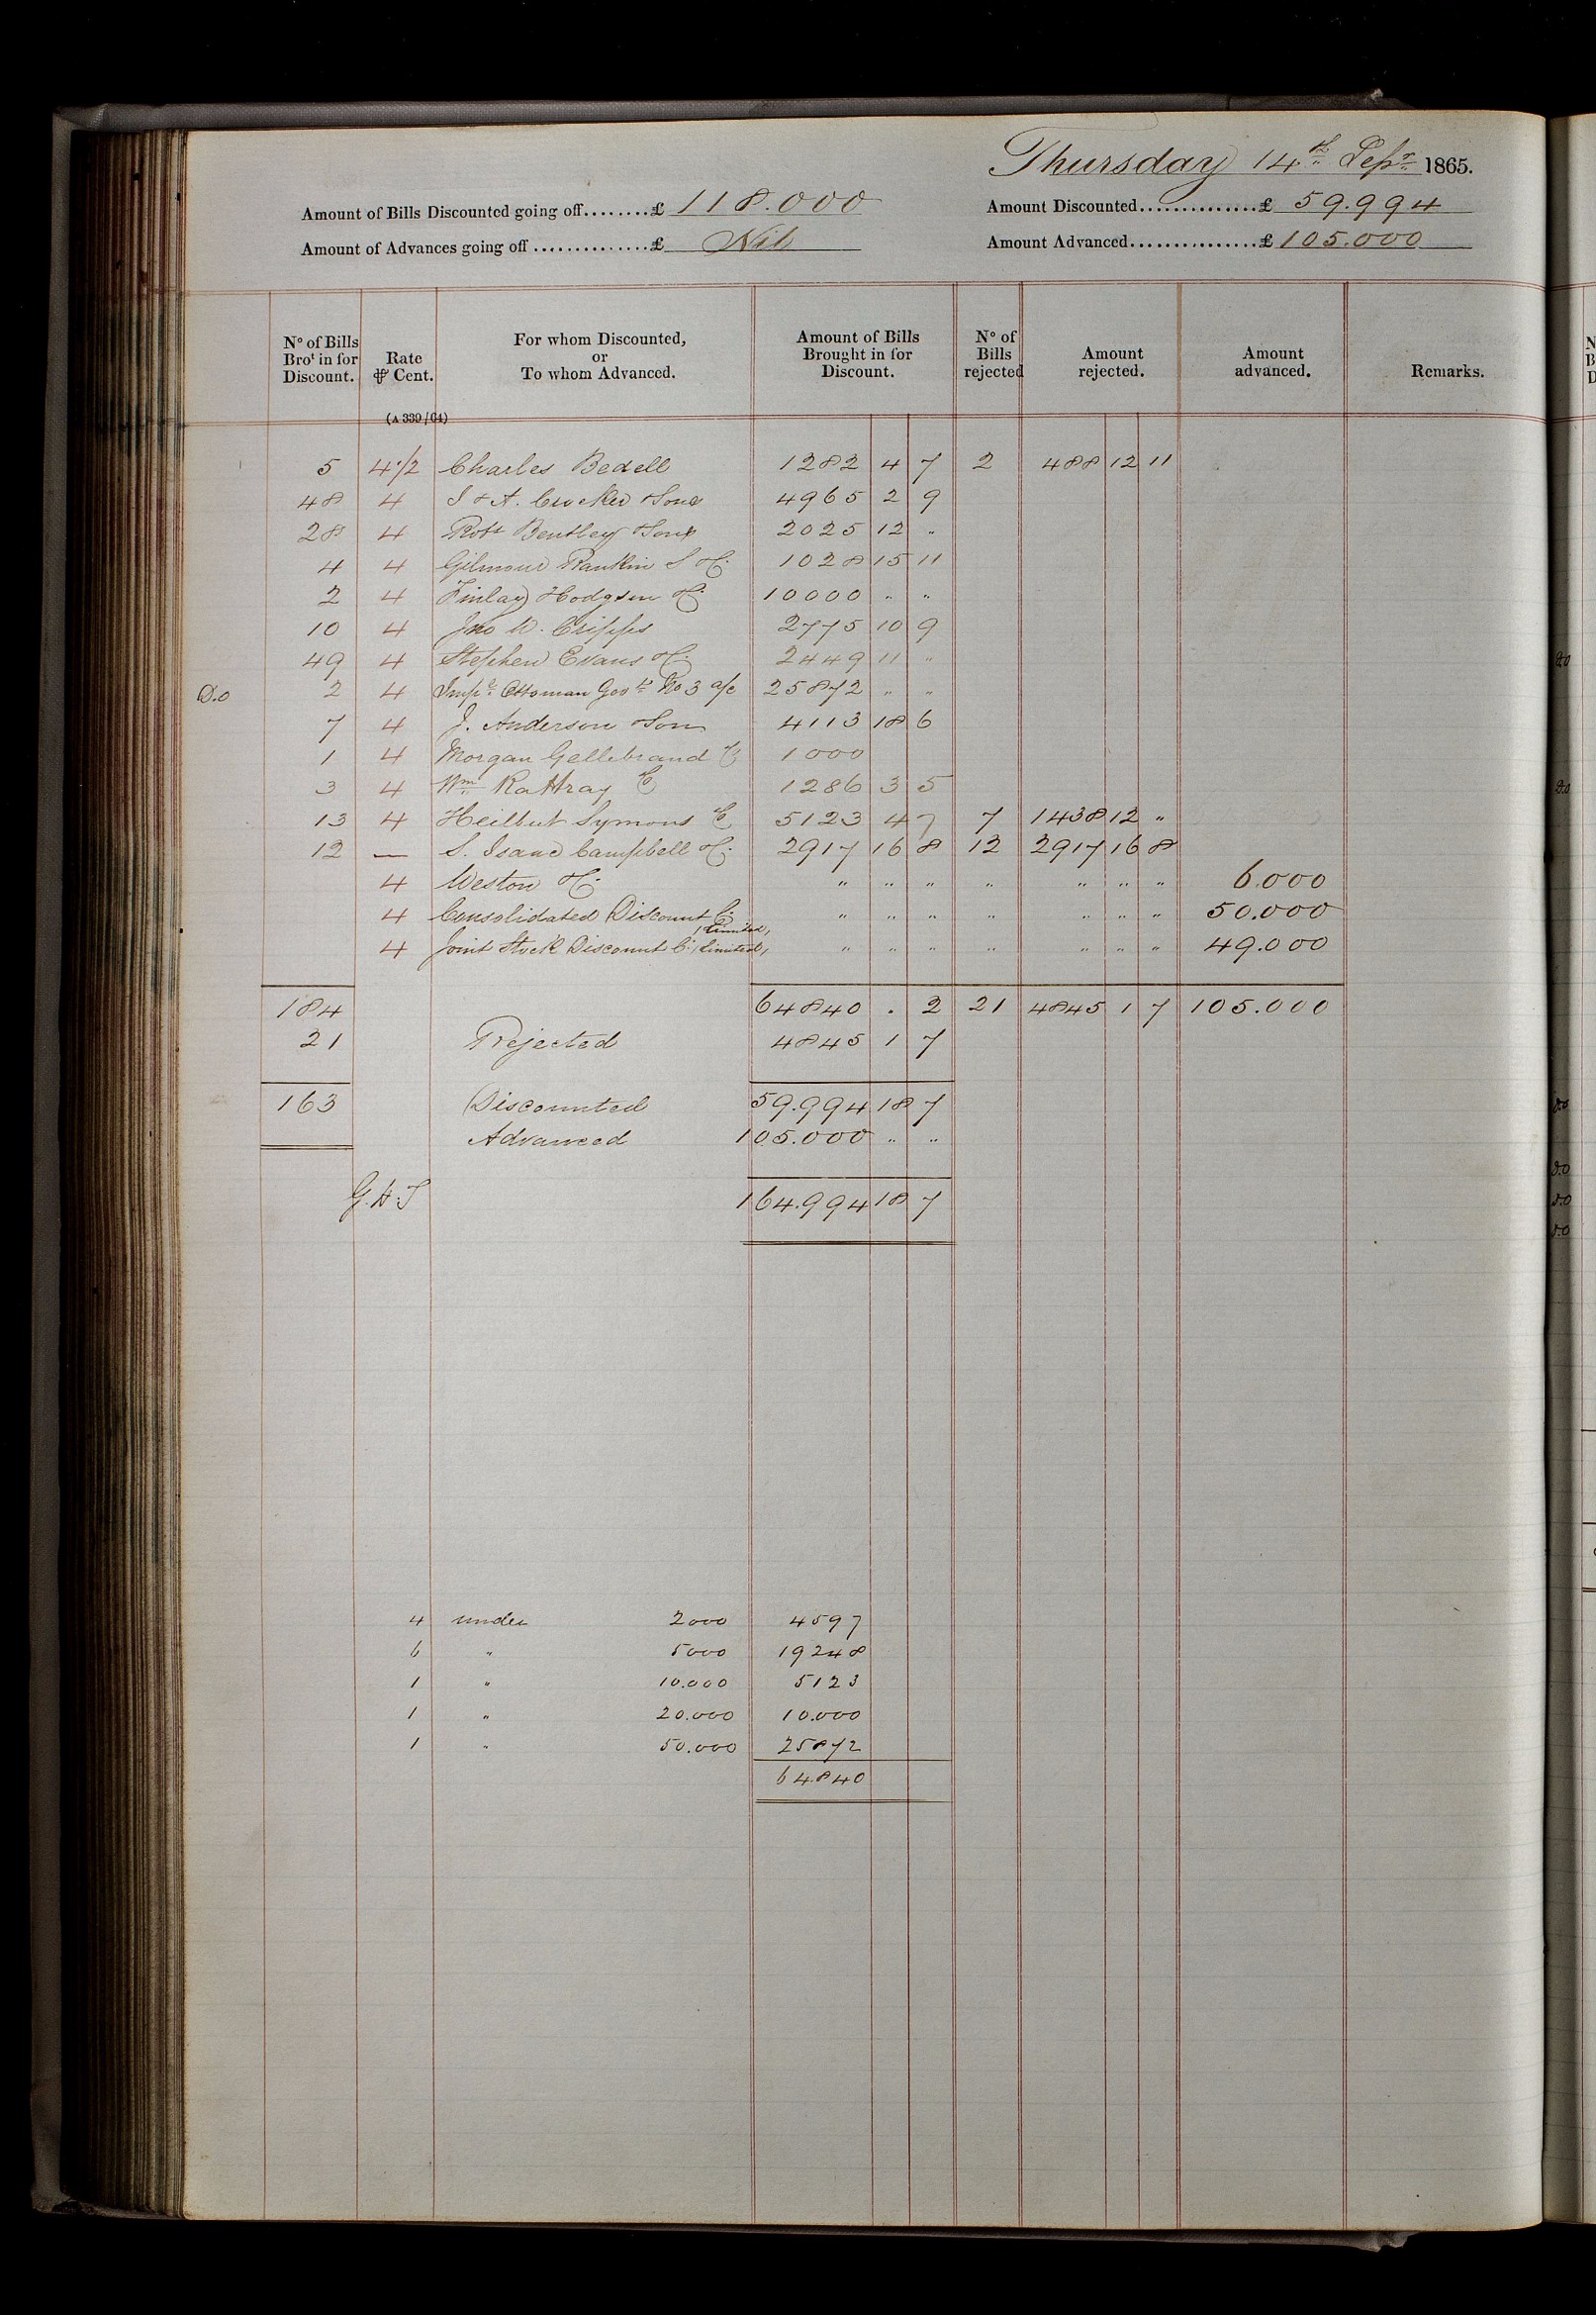 Thursday 14th Sepr 1865.
Amount of Bills Discounted going off........£ 118.000 Amount Discounted...............£ 59.994
Amount of Advances going off...............£ Nil Amount Advanced................£ 105.000
No of Bills Brot in for Discount. Rate ⅌ Cent. For whom Discounted, or To whom Advanced. Amount of Bills Brought in for Discount. No of Bills rejected Amount rejected. Amount advanced. Remarks.
(A 339/64)
5 4 1/2 Charles Bedell 1282 4 7 2 488 12 11
48 4 I & A. Crocker & Sons 4965 2 9
28 4 Robt Bentley & Sons 2025 12 "
4 4 Gilmour Rankin S & Co 1028 15 11
2 4 Finlay Hodgson & Co 10000 " "
10 4 Jno W. Cripps 2775 10 9
49 4 Stephen Evans & Co 2449 11 "
D.o 2 4 Impl Ottoman Govt No 3 a/c 25872 " "
7 4 J. Anderson & Son 4113 18 6
1 4 Morgan Gellebrand Co 1000
3 4 Wm Rattray Co 1286 3 5
13 4 Heilbut Symons Co 5123 4 7 7 1438 12 "
12 — S. Isaac Campbell & Co 2917 16 8 12 2917 16 8
4 Weston & Co " " " " " " " 6.000
4 Consolidated Discount Co (Limited) " " " " " " " 50.000
4 Joint Stock Discount Co (Limited) " " " " " " " 49.000
184 64840 . 2 21 4845 1 7 105.000
21 Rejected 4845 1 7
163 Discounted 59.994 18 7
Advanced 105.000 " "
164.994 18 7
4 under 2000 4597
6 " 5000 19248
1 " 10.000 5123
1 " 20.000 10.000
1 " 50.000 25872
64840